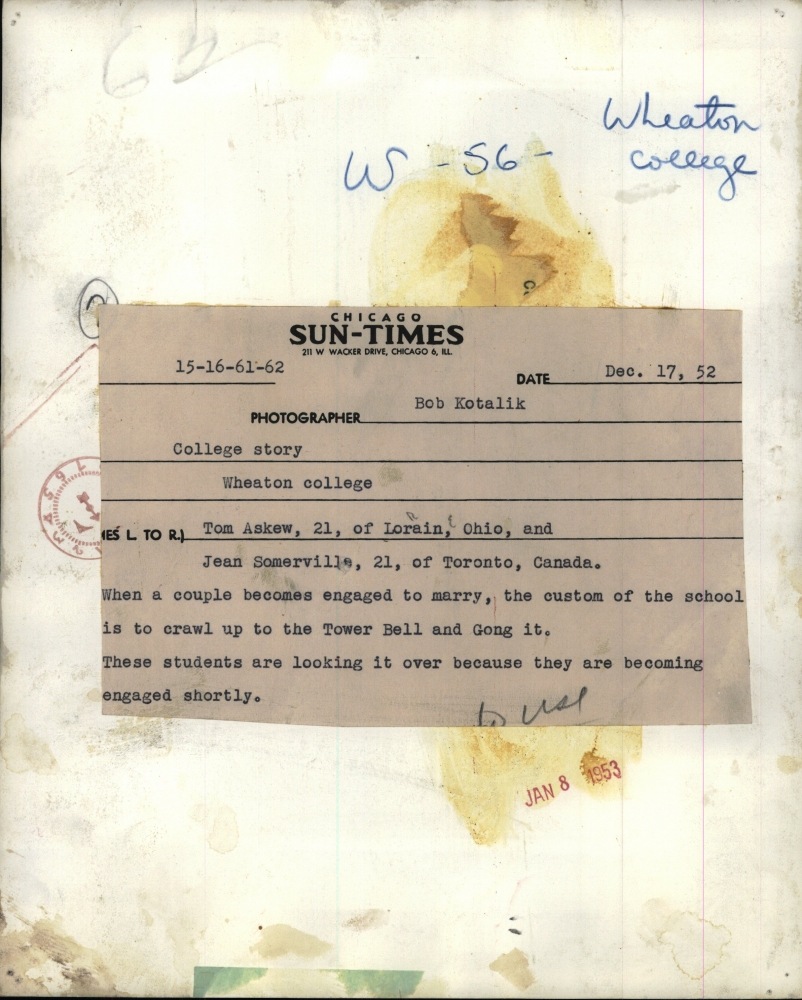 Wheaton
college
W - 56 -
CHICAGO
SUN-TIMES
211 W WACKER DRIVE, CHICAGO 6, ILL.
15-16-61-62
DATE Dec. 17, 52
PHOTOGRAPHER Bob Kotalik
College story
Wheaton college
(ES L. TO R.) Tom Askew, 21, of Lorain, Ohio, and
Jean Somerville, 21, of Toronto, Canada.
When a couple becomes engaged to marry, the custom of the school
is to crawl up to the Tower Bell and Gong it.
These students are looking it over because they are becoming
engaged shortly.
to use
JAN 8 1953